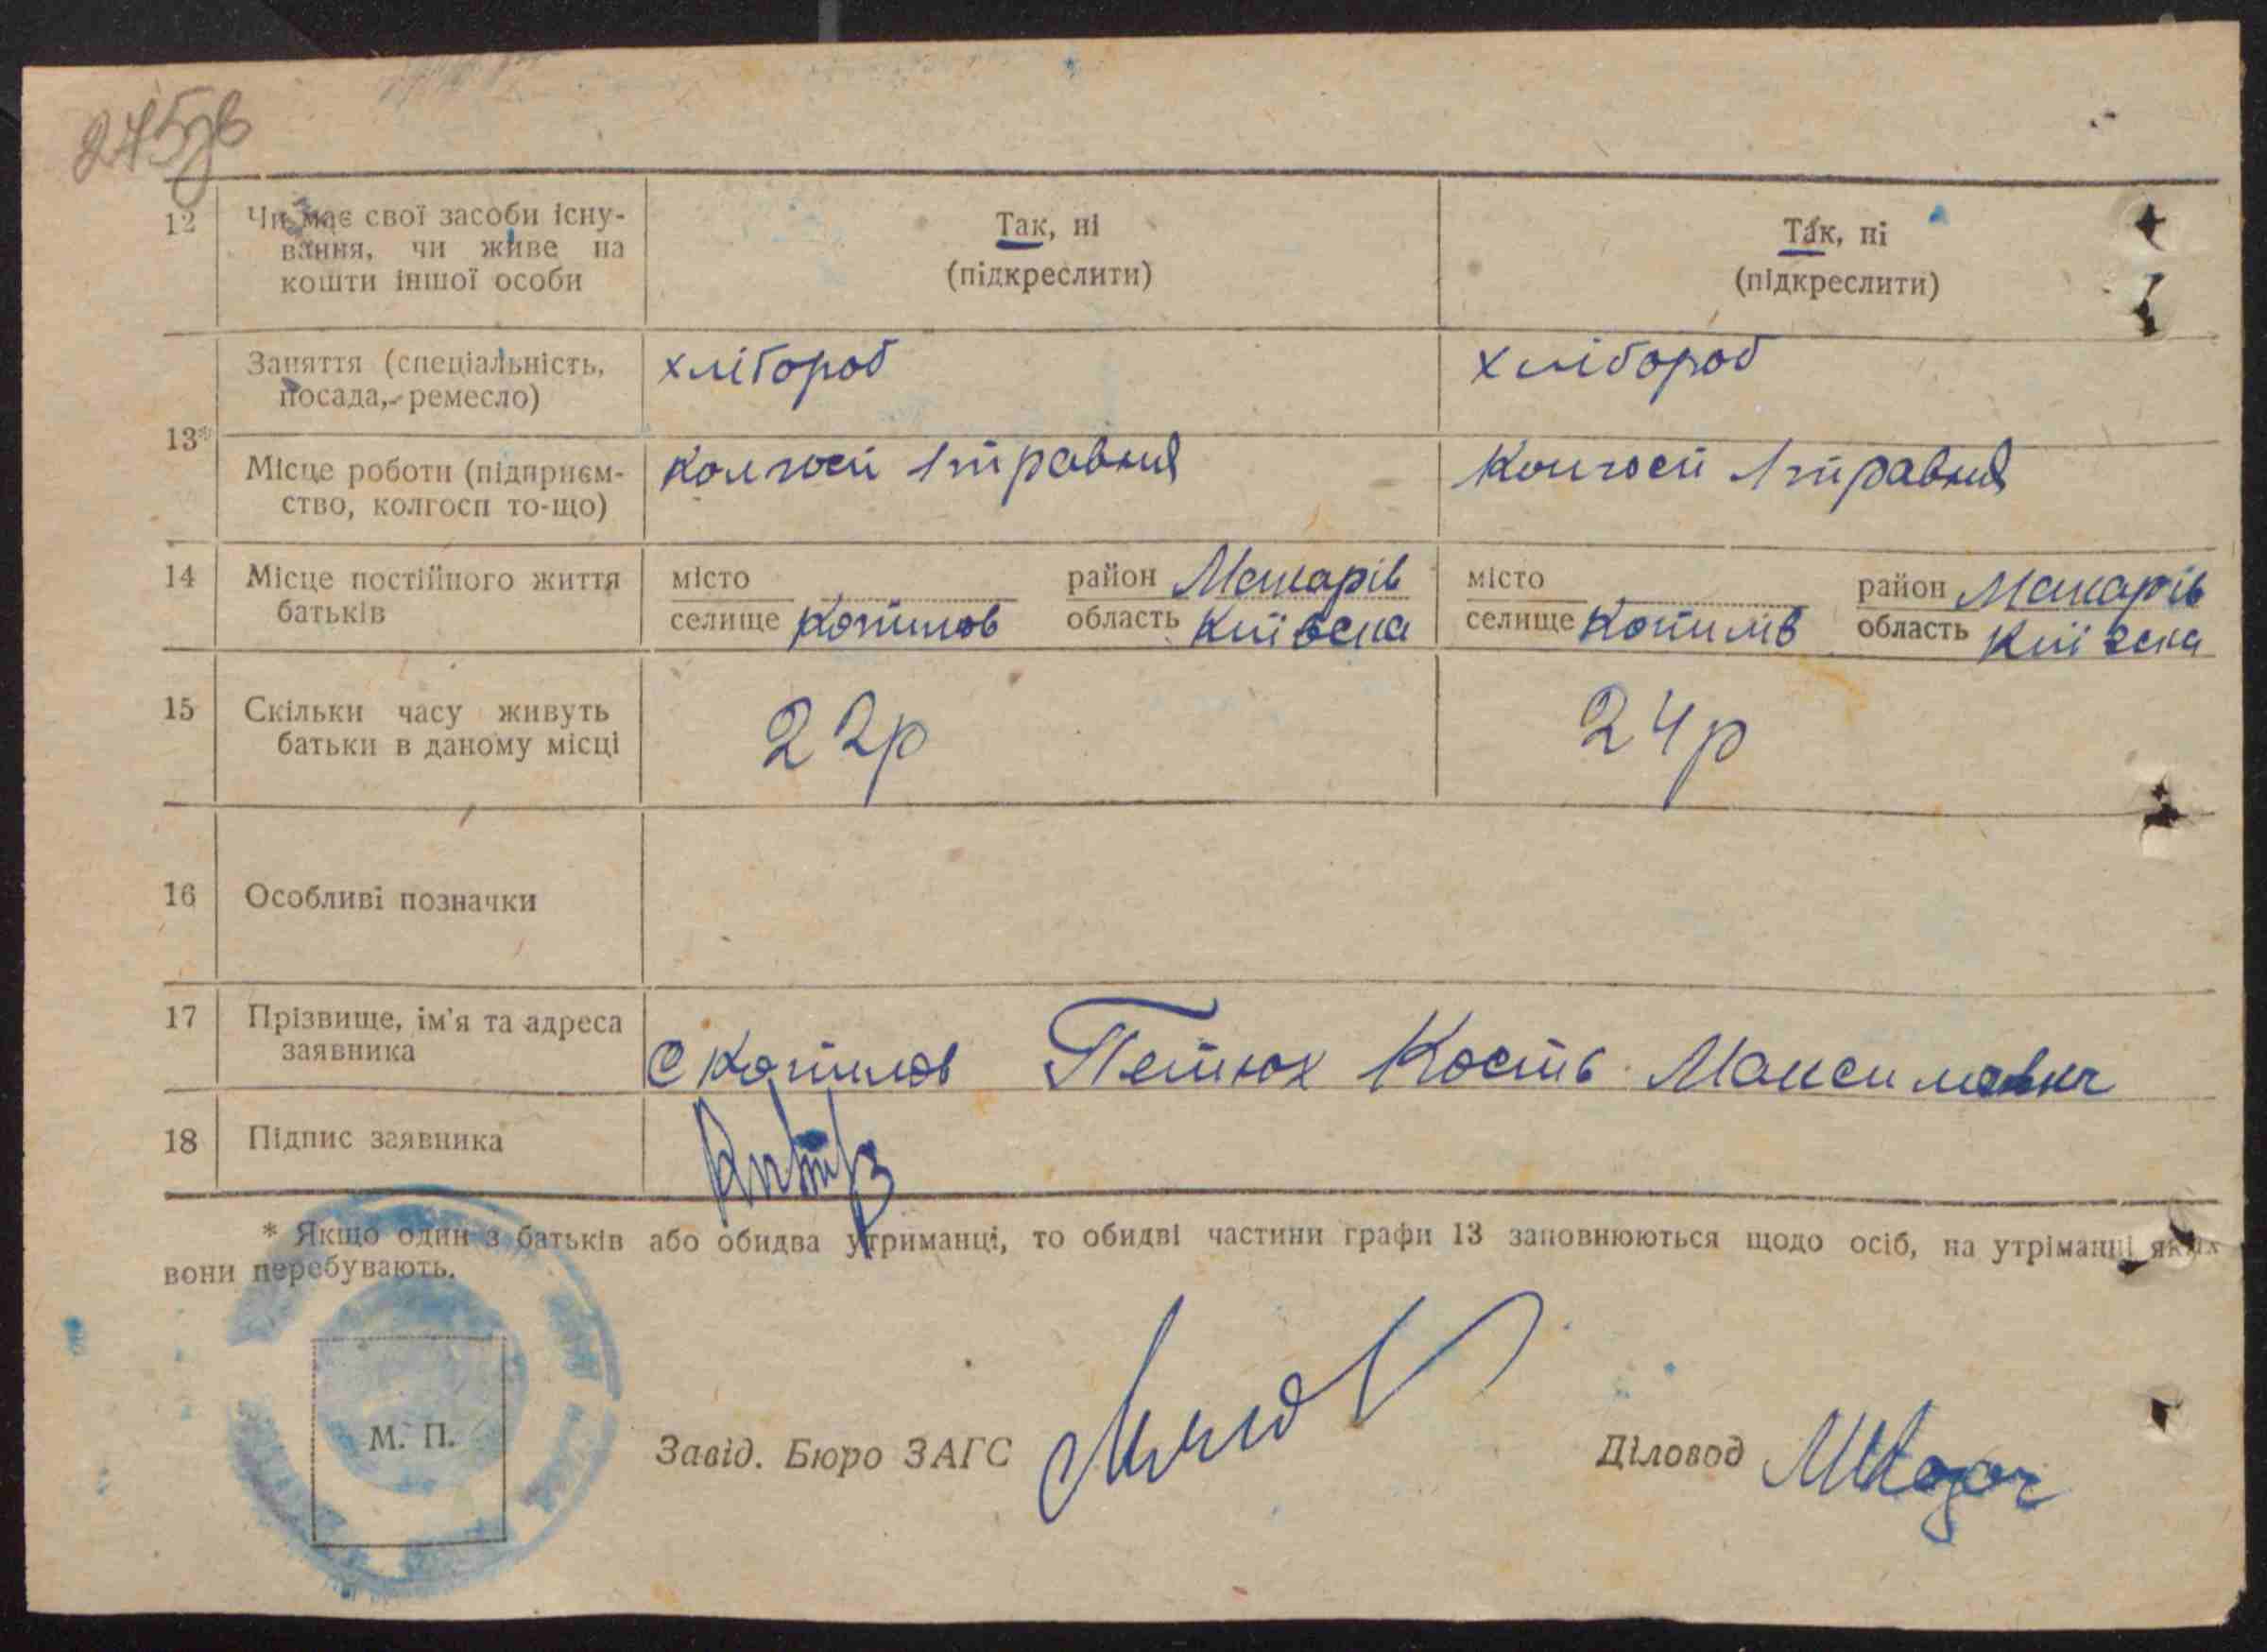 245зв
12 Чи має свої засоби існу-
вання, чи живе на
кошти іншої особи
Так, ні
(підкреслити)
Так, ні
(підкреслити)
13*
Заняття (спеціальність,
посада, ремесло)
хлібороб
хлібороб
Місце роботи (підприєм-
ство, колгосп то-що)
колгосп 1 травня
колгосп 1 травня
14 Місце постійного життя
батьків
місто
селище Копилов
район Макарів
область Київска
місто
селище Копилів
район Макарів
область Київска
15 Скільки часу живуть
батьки в даному місці
22р
24р
16 Особливі позначки
17 Прізвище, ім'я та адреса
заявника
с Копилов Петюх Кость Максимович
18 Підпис заявника
* Якщо один з батьків або обидва утриманці, то обидві частини графи 13 заповнюються щодо осіб, на утріманці яких
вони перебувають.
М. П.
Завід. Бюро ЗАГС
Діловод